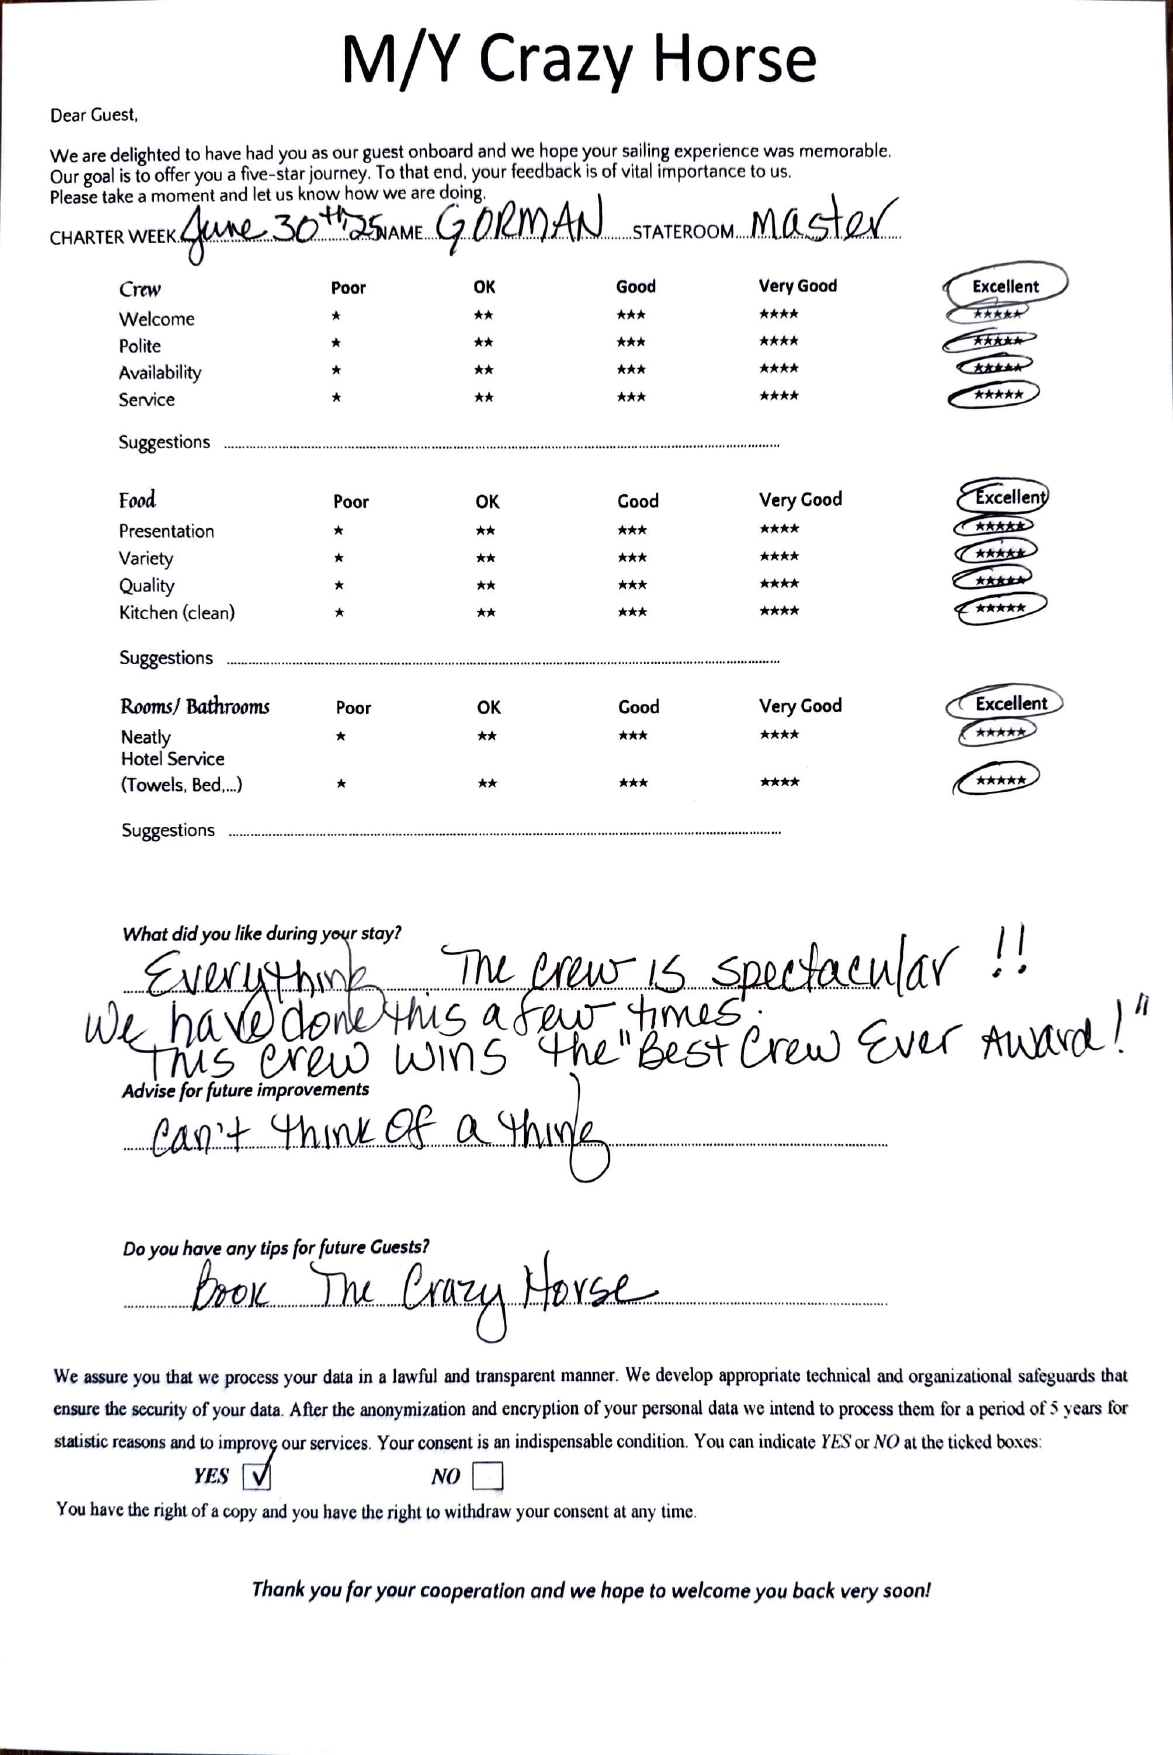 M/Y Crazy Horse
Dear Guest,
We are delighted to have had you as our guest onboard and we hope your sailing experience was memorable.
Our goal is to offer you a five-star journey. To that end, your feedback is of vital importance to us.
Please take a moment and let us know how we are doing.
CHARTER WEEK June 30th, 25 NAME GORMAN STATEROOM Master
Crew Poor OK Good Very Good Excellent
Welcome ★ ★★ ★★★ ★★★★ ★★★★★
Polite ★ ★★ ★★★ ★★★★ ★★★★★
Availability ★ ★★ ★★★ ★★★★ ★★★★★
Service ★ ★★ ★★★ ★★★★ ★★★★★
Suggestions
Food Poor OK Good Very Good Excellent
Presentation ★ ★★ ★★★ ★★★★ ★★★★★
Variety ★ ★★ ★★★ ★★★★ ★★★★★
Quality ★ ★★ ★★★ ★★★★ ★★★★★
Kitchen (clean) ★ ★★ ★★★ ★★★★ ★★★★★
Suggestions
Rooms/ Bathrooms Poor OK Good Very Good Excellent
Neatly ★ ★★ ★★★ ★★★★ ★★★★★
Hotel Service
(Towels, Bed,...) ★ ★★ ★★★ ★★★★ ★★★★★
Suggestions
What did you like during your stay?
Everything The crew is spectacular !!
We have done this a few times.
This crew wins the "Best Crew Ever Award!"
Advise for future improvements
Can't think of a thing
Do you have any tips for future Guests?
Book The Crazy Horse
We assure you that we process your data in a lawful and transparent manner. We develop appropriate technical and organizational safeguards that
ensure the security of your data. After the anonymization and encryption of your personal data we intend to process them for a period of 5 years for
statistic reasons and to improve our services. Your consent is an indispensable condition. You can indicate YES or NO at the ticked boxes:
YES ✓ NO
You have the right of a copy and you have the right to withdraw your consent at any time.
Thank you for your cooperation and we hope to welcome you back very soon!